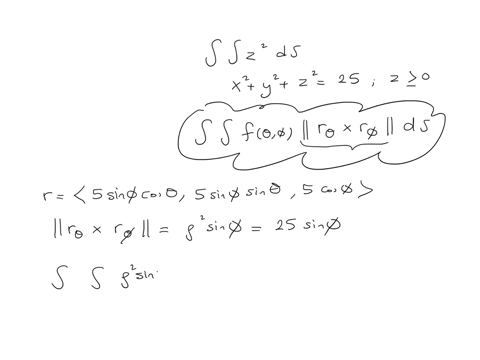 ∫ ∫ z² dS
x² + y² + z² = 25 ; z ≥ 0
∫ ∫ f(θ,ϕ) ‖ rθ × rϕ ‖ dS
r = < 5 sinϕ cosθ, 5 sinϕ sinθ, 5 cosϕ >
‖ rθ × rϕ ‖ = ρ² sinϕ = 25 sinϕ
∫ ∫ ρ² sin